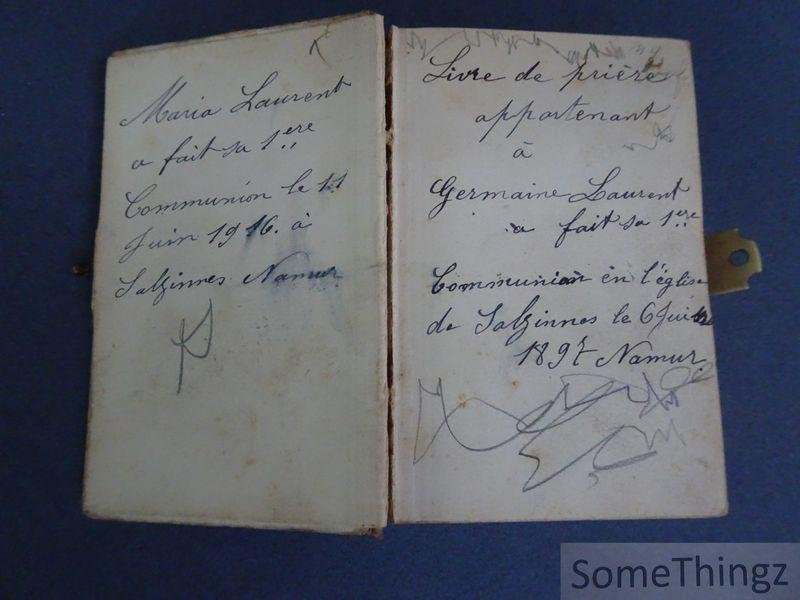 Maria Laurent
a fait sa 1ere
Communion le 11
Juin 1916. à
Salzinnes Namur
Livre de prière
appartenant
à
Germaine Laurent
a fait sa 1ere
Communion en l'église
de Salzinnes le 6 Juin
1897 Namur.
SomeThingz